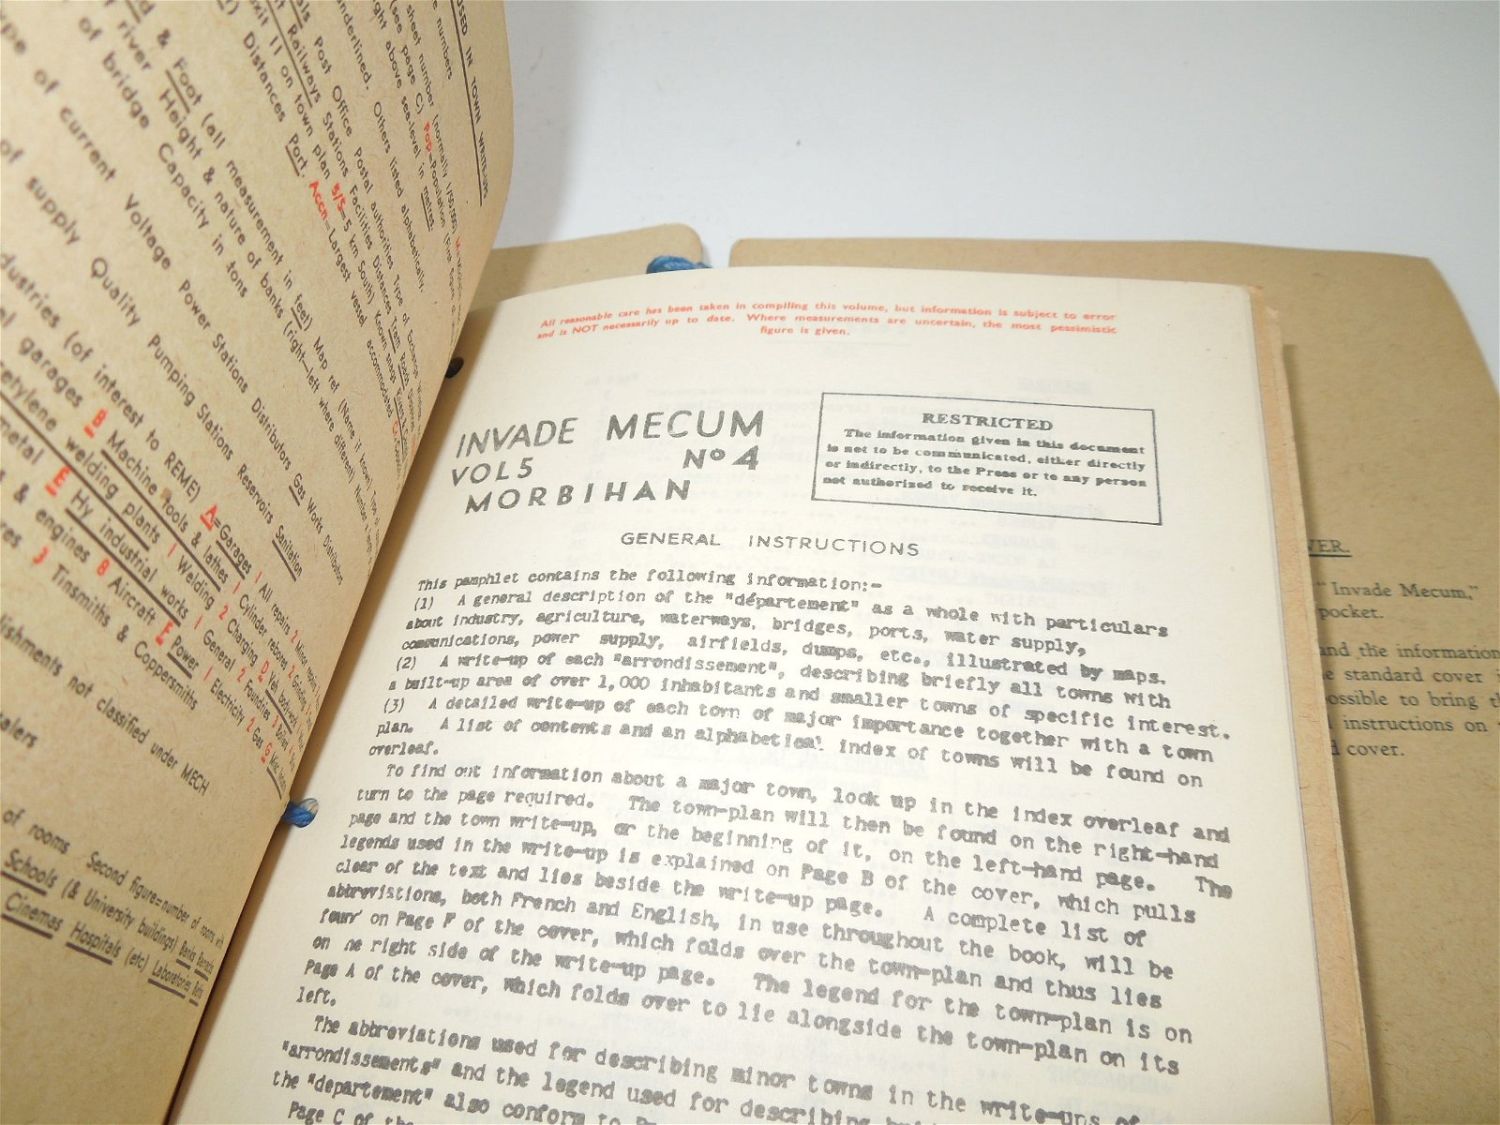 USED IN TOWN WRITE-UPS
numbers
sheet number (normally 1/50,000)
(see page C) Pop=Population
ght above sea-level in metres.
underlined. Others listed alphabetically.
Post Office Postal authorities Type of Exchange
Railways Stations Facilities Distances Tram Roads
xit 11 on town plan 5/S=5 km South) Known snags
Distances Port. Accn=Largest vessel accommodated
& Foot (all measurement in feet) Map ref (Name if known) Type
river Height & nature of banks (right—left where different)
of bridge Capacity in tons
ype of current Voltage Power Stations Distributors Gas Works Distributors
of supply Quality Pumping Stations Reservoirs Sanitation
dustries (of interest to REME) A=Garages 1 All repairs 2 Minor repairs
garages B Machine tools & lathes 1 Cylinder rebores 2 Grinding
etylene welding plants 1 Welding 2 Charging D Veh bodywork
metal E Hy industrial works 1 General 2 Foundries 3 Boilers
& engines 8 Aircraft F Power 1 Electricity 2 Gas G
3 Tinsmiths & Coppersmiths
lishments not classified under MECH
alers
of rooms Second figure=number of rooms with
Schools (& University buildings) Banks Barracks
Cinemas Hospitals (etc) Laboratories Baths
All reasonable care has been taken in compiling this volume, but information is subject to error
and is NOT necessarily up to date. Where measurements are uncertain, the most pessimistic
figure is given.
INVADE MECUM
VOL 5 No 4
MORBIHAN
RESTRICTED
The information given in this document
is not to be communicated, either directly
or indirectly, to the Press or to any person
not authorized to receive it.
GENERAL INSTRUCTIONS
This pamphlet contains the following information:-
(1) A general description of the "département" as a whole with particulars
about industry, agriculture, waterways, bridges, ports, water supply,
communications, power supply, airfields, dumps, etc., illustrated by maps.
(2) A write-up of each "arrondissement", describing briefly all towns with
a built-up area of over 1,000 inhabitants and smaller towns of specific interest.
(3) A detailed write-up of each town of major importance together with a town
plan. A list of contents and an alphabetical index of towns will be found on
overleaf.
To find out information about a major town, look up in the index overleaf and
turn to the page required. The town-plan will then be found on the right-hand
page and the town write-up, or the beginning of it, on the left-hand page. The
legends used in the write-up is explained on Page B of the cover, which pulls
clear of the text and lies beside the write-up page. A complete list of
abbreviations, both French and English, in use throughout the book, will be
found on Page F of the cover, which folds over the town-plan and thus lies
on the right side of the write-up page. The legend for the town-plan is on
Page A of the cover, which folds over to lie alongside the town-plan on its
left.
The abbreviations used for describing minor towns in the write-ups of
"arrondissements" and the legend used for describing
the "departement" also conform to
Page C of the
VER.
" Invade Mecum,"
pocket.
and the information
standard cover
ossible to bring th
instructions on
d cover.